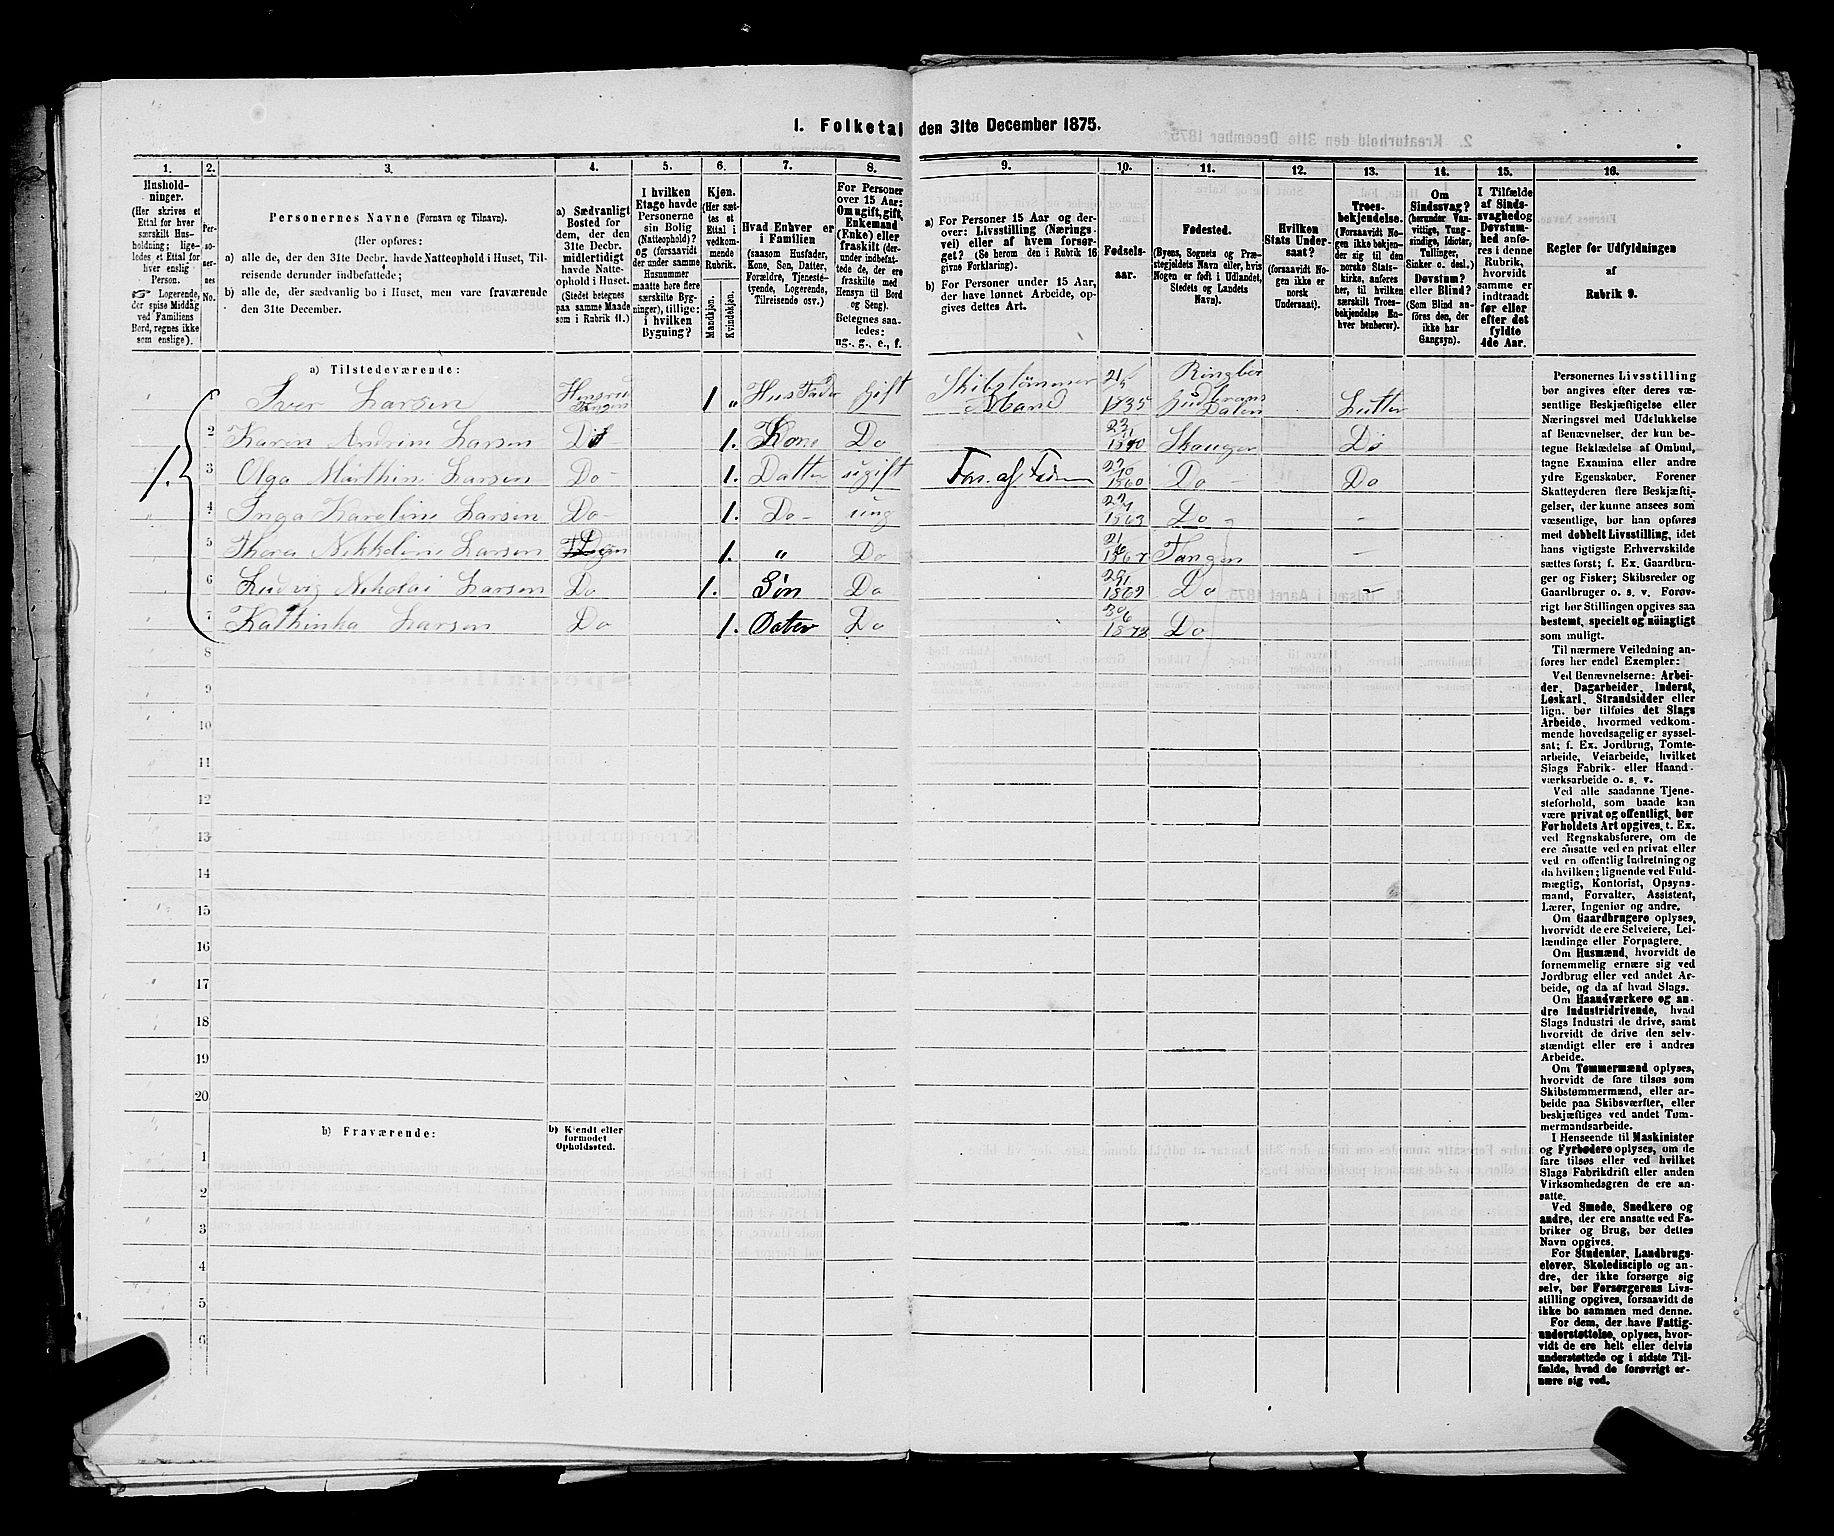 1. Folketal den 31te December 1875.
1.
Hushold-
ninger.
(Her skrives et
Ettal for hver
særskilt Hus-
holdning; lige-
ledes et Ettal for
hver enslig
Person.
Logerende,
der spise Middag
ved Familiens
Bord, regnes ikke
som enslige).
2.
Per-
so-
ner-
nes
No.
3.
Personernes Navne (Fornavn og Tilnavn).
(Her opføres:
a) alle de, der den 31te Decbr. havde Natteophold i Huset, Til-
reisende derunder indbefattede;
b) alle de, der sædvanlig bo i Huset, men vare fraværende
den 31te December.
4.
a) Sædvanligt
Bosted for
dem, der den
31te Decbr.
midlertidigt
havde Natte-
ophold i Huset.
(Stedet betegnes
paa samme Maade
som i Rubrik 11.)
5.
I hvilken
Etage havde
Personerne
sin Bolig
(Natteophold)?
og (forsaavidt
der under samme
Husnummer
maatte høre flere
særskilte Byg-
ninger), tillige:
i hvilken
Bygning?
6.
Kjøn.
(Her sæt-
tes et
Ettal i
vedkom-
mende
Rubrik.
Mandkjøn.
Kvindekjøn.
7.
Hvad Enhver er
i Familien
(saasom Husfader,
Kone, Søn, Datter,
Forældre, Tjeneste-
tyende, Logerende,
Tilreisende osv.)
8.
For Personer
over 15 Aar:
Om ugift, gift,
Enkemand
(Enke) eller
fraskilt (der-
under indbefat-
tede de, der ere
fraskilte med
Hensyn til Bord
og Seng).
Betegnes saa-
ledes:
ug., g., e., f.
9.
a) For Personer 15 Aar og der-
over: Livsstilling (Nærings-
vei) eller af hvem forsør-
get? (Se herom den i Rubrik 16
givne Forklaring).
b) For Personer under 15 Aar,
der have lønnet Arbeide, op-
gives dettes Art.
10.
Fødsels-
aar.
11.
Fødested.
(Byens, Sognets og Præs-
tegjeldets Navn eller, hvis
Nogen er født i Udlandet,
Stedets og Landets
Navn).
12.
Hvilken
Stats Under-
saat?
(forsaavidt No-
gen ikke er
norsk
Undersaat).
13.
Troes-
bekjendelse.
(Forsaavidt No-
gen ikke bekjen-
der sig til den
norske Stats-
kirke, anføres
her, til hvilken
særskilt Troes-
bekjendelse En-
hver henhører).
14.
Om
Sindssvag?
(herunder Van-
vittige, Tung-
sindige, Idioter,
Tullinger,
Sinker o. desl.)
Døvstum?
eller Blind?
(Som Blind an-
føres den, der
ikke har
Gangsyn).
15.
I Tilfælde
af Sinds-
svaghed og
Døvstum-
hed anfø-
res i denne
Rubrik,
hvorvidt
samme er
indtraadt
før eller
efter det
fyldte
4de Aar.
16.
Regler for Udfyldningen
af
Rubrik 9.
a) Tilstedeværende:
1.
Iver Larsen Hensrud Tangen 1 „ Hus Fader Gift Skibstömmer Mand 21/5 1835 Ringbo Gudbrans Dalen Lutter
2 Karen Andrine Larsen Do 1. Kone Do 23/11 1840 Skauger Do
3 Olga Marthin Larsen Do 1. Datter ugift Fors. af Faderen 23/10 1860 Do Do
4 Inga Karoline Larsen Do 1. Do ung 1863 Do „
5 Thora Nikkoline Larsen 1. „ Do 1867 Tangen „
6 Ludvig Nikolai Larsen Do 1. Sön Do 1869 Do „
7 Kathinka Larsen Do 1. Dater Do 30/6 1873 Do
8
9
10
11
12
13
14
15
16
17
18
19
20
b) Fraværende:
b) Kjendt eller
formodet
Opholdssted.
1
2
3
4
5
6
Personernes Livsstilling
bør angives efter deres væ-
sentlige Beskjæftigelse eller
Næringsvei med Udelukkelse
af Benævnelser, der kun be-
tegne Beklædelse af Ombud,
tagne Examina eller andre
ydre Egenskaber. Forener
Skatteyderen flere Beskjæfti-
gelser, der kunne ansees som
væsentlige, bør han opføres
med dobbelt Livsstilling, idet
hans vigtigste Erhvervskilde
sættes forst; f. Ex. Gaardbru-
ger og Fisker; Skibsreder og
Gaardbruger o. s. v. Forøv-
rigt bør Stillingen opgives saa
bestemt, specielt og nöiagtigt
som muligt.
Til nærmere Veiledning an-
føres her endel Exempler:
Ved Benævnelserne: Arbei-
der, Dagarbeider, Inderst,
Løskarl, Strandsidder eller
lign. bør tilføies det Slags
Arbeide, hvormed vedkom-
mende hovedsagelig er syssel-
sat; f. Ex. Jordbrug, Tomte-
arbeide, Veiarbeide, hvilket
Slags Fabrik- eller Haand-
værksarbeide o. s. v.
Ved alle saadanne Tjene-
steforhold, som baade kan
være privat og offentligt, bør
Forholdets Art opgives, t. Ex.
ved Regnskabsførere, om de
ere ansatte ved en privat eller
ved en offentlig Indretning og
da hvilken; lignende ved Fuld-
mægtig, Kontorist, Opsyns-
mand, Forvalter, Assistent,
Lærer, Ingeniør og andre.
Om Gaardbrugere oplyses,
hvorvidt de ere Selveiere, Lei-
lændinge eller Forpagtere.
Om Husmænd, hvorvidt de
fornemmelig ernære sig ved
Jordbrug eller ved andet Ar-
beide, og da af hvad Slags.
Om Haandværkere og an-
dre Industridrivende, hvad
Slags Industri de drive, samt
hvorvidt de drive den selv-
stændigt eller ere i andres
Arbeide.
Om Tømmermænd oplyses,
hvorvidt de fare tilsøs som
Skibstømmermænd, eller ar-
beide paa Skibsværfter, eller
beskjæftiges ved andet Tøm-
mermandsarbeide.
I Henseende til Maskinister
og Fyrbødere oplyses, om de
fare tilsøs eller ved hvilket
Slags Fabrikdrift eller anden
Virksomhedsgren de ere an-
satte.
Ved Smede, Snedkere og
andre, der ere ansatte ved Fa-
briker og Brug, bør dettes
Navn opgives.
For Studenter, Landbrugs-
elever, Skoledisciple og an-
dre, der ikke forsørge sig
selv, bør Forsørgerens Livs-
stilling opgives, forsaavidt de
ikke bo sammen med denne.
For dem, der have Fattig-
understøttelse, oplyses, hvor-
vidt de ere helt eller delvis
understøttede og i sidste Til-
fælde, hvad de forøvrigt er-
nære sig ved.